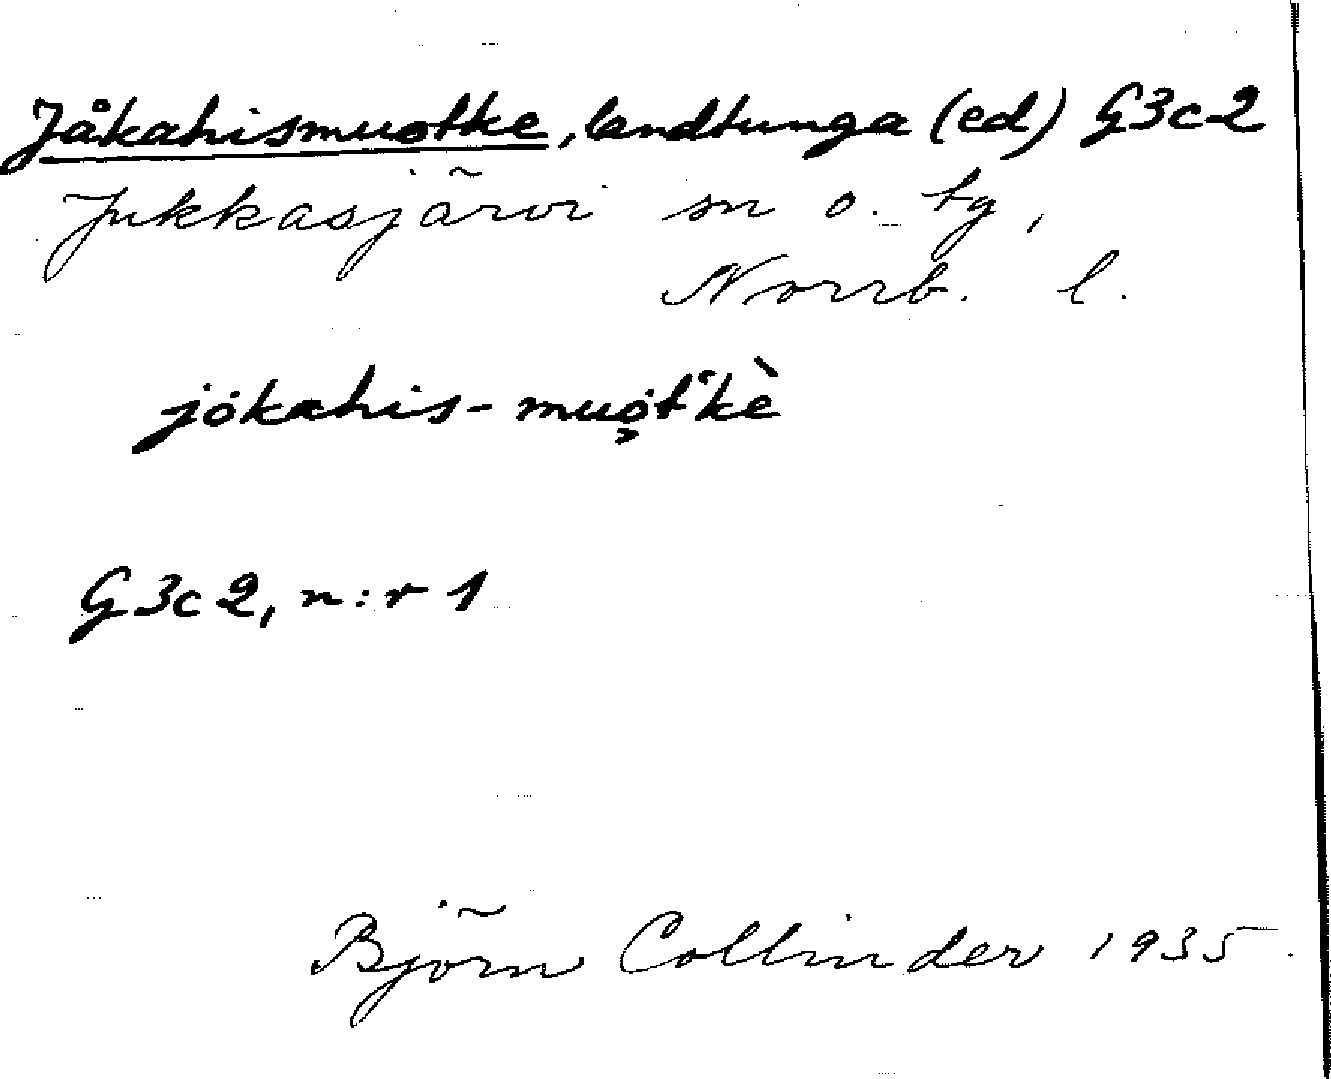 Jåkahismuotke, landtunga (ed) G3c2
Jukkasjärvi sn o. tg,
Norrb. l.
jȯkahis-muo̭t'kè
G3c2, n:r 1
Björn Collinder 1935.